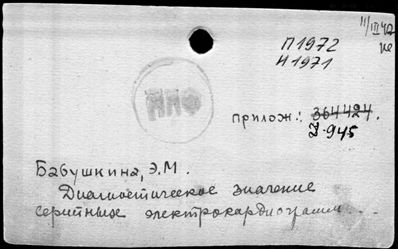 11/III 42
П1972
Н1971
прилож.: 364424.
945
Бабушкина, Э.М.
Диагностическое значение
серийных электрокардиограмм...